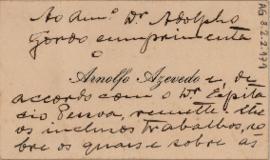 Ao Am.º Dr. Adolpho
Gordo cumprimenta
o
Arnolfo Azevedo e, de
accordo com o Dr. Epita
cio Pessoa, remette-lhe
os inclusos trabalhos, so
bre os quaes e sobre as
AG 8.2.2.979